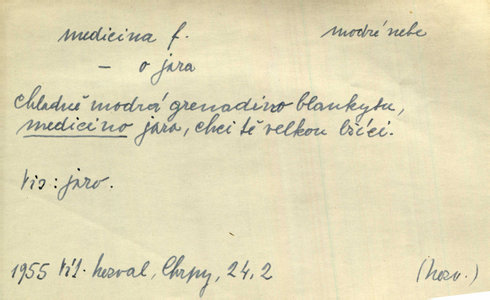 medicina f. modré nebe
— o jara
chladně modrá grenadino blankytu,
medicino jara, chci tě velkou lžící.
Viz: jaro.
1955 Vít. nezval, Chrpy, 24, 2 (nezv.)